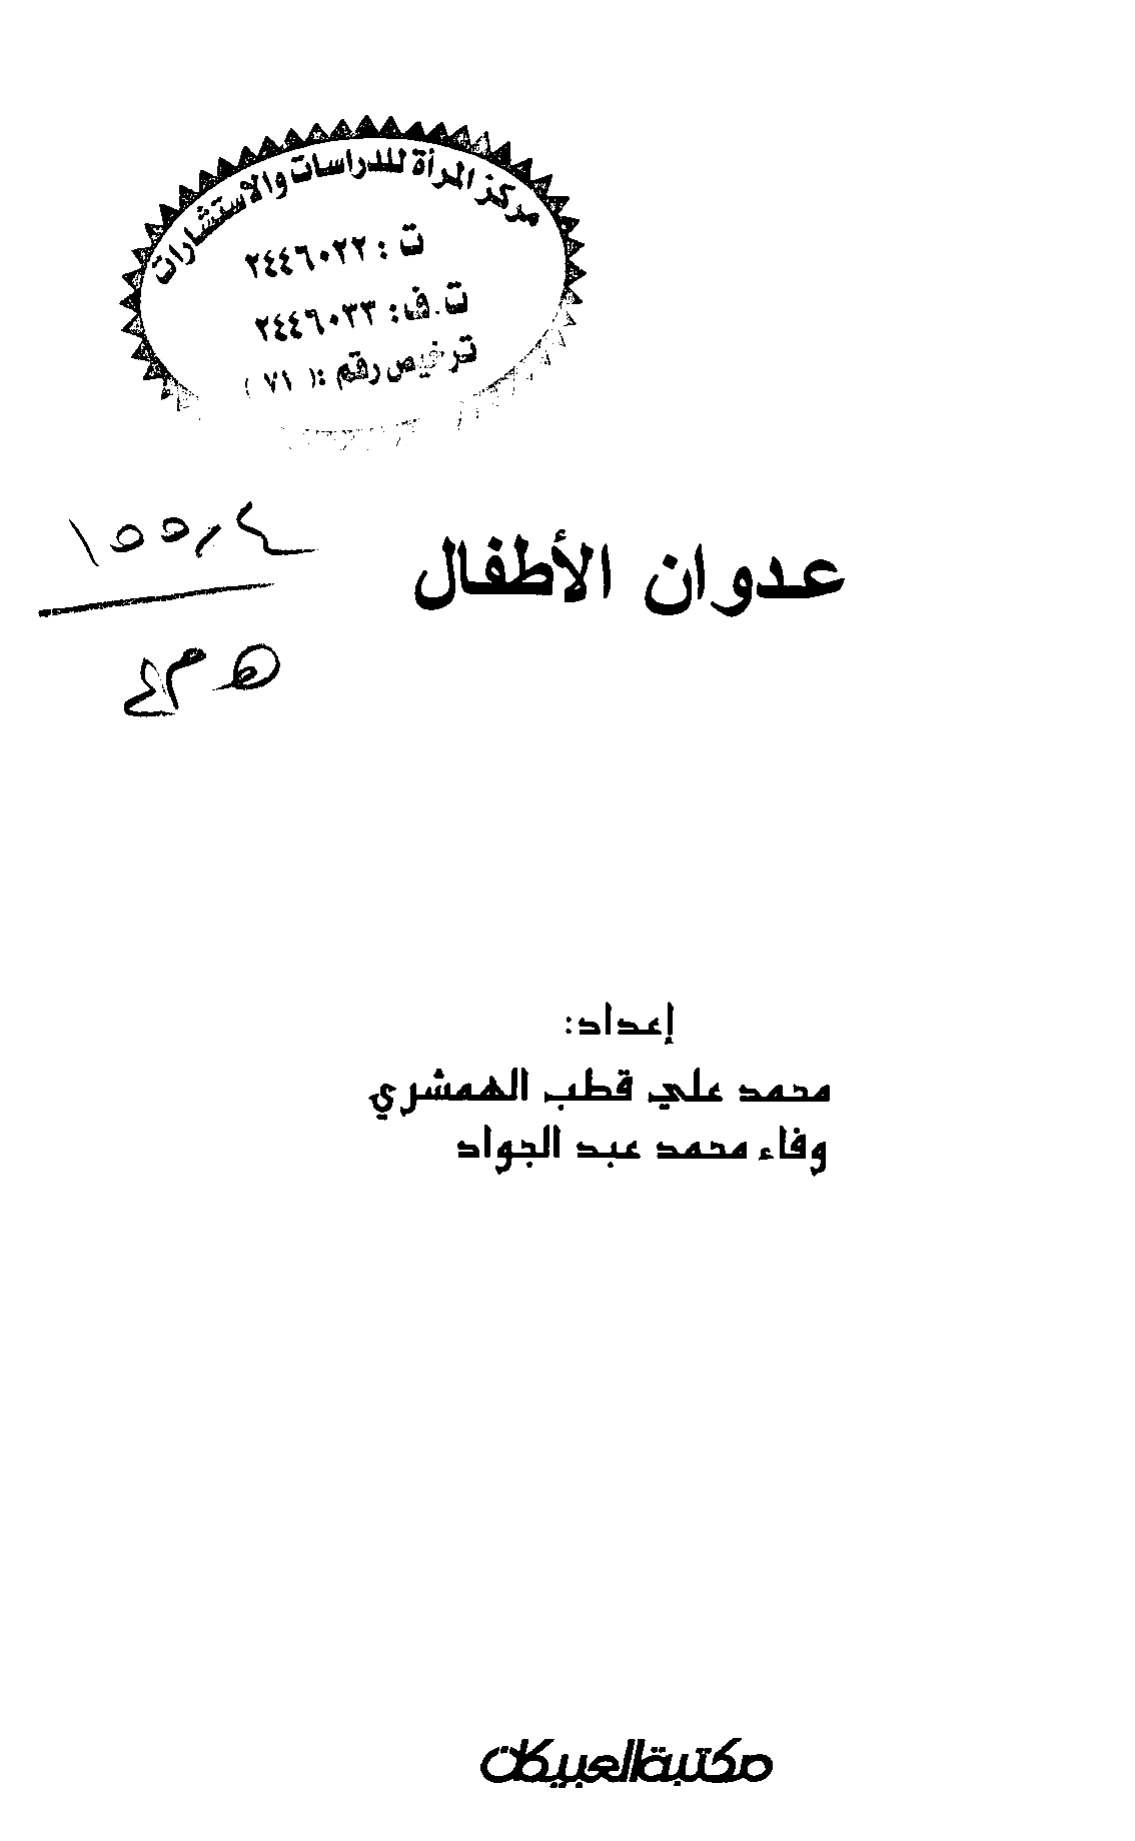 مركز المرأة للدراسات والاستشارات
ت : ٢٤٤٦٠٢٢
ت.ف: ٢٤٤٦٠٣٣
ترخيص رقم :( ٧١ )
١٥٥,٤
هـ م ع
عدوان الأطفال
إعداد:
محمد علي قطب الهمشري
وفاء محمد عبد الجواد
مكتبة العبيكان